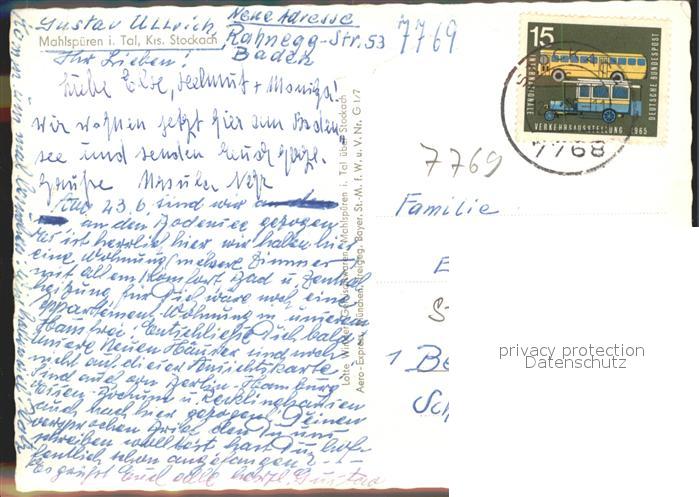 Gustav Ullrich
Neue Adresse
Mahlspüren i. Tal, Krs. Stockach
Rahnegg-Str. 53
Baden
7769
Ihr Lieben!
Liebe Else, Helmut + Monika!
Wir wohnen jetzt hier am Boden-
see und senden Euch herzl.
Grüße Ursula
Am 23.6. sind wir
an den Bodensee gezogen
Es ist herrlich hier wir haben hier
eine Wohnung mehrere Zimmer
mit allem Komfort Bad u Zentral
heizung für Dich wäre noch eine
Appartement Wohnung in unserem
Haus frei! Entschließe Dich bald
unsere Neuen Häuser sind noch
nicht auf dieser Ansichtskarte
Sind auch von Berlin - Hamburg
Essen - Bochum u. Recklinghausen
auch nach hier gezogen Deinen
versprochen Brief den Du uns
schreiben wolltest hast Du hof-
fentlich schon angefangen
Es grüßt Euch alle herzl. Gustav
Lotte Winkler, Gemischtwaren, Mahlspüren i. Tal über Stockach
Aero-Express, München, Freigeg. Bayer. St.-M. f. W. u. V. Nr. G 1/7
15
DEUTSCHE BUNDESPOST
INTERNATIONALE
VERKEHRSAUSSTELLUNG 1965
7768
7769
Familie
E
S
1 Be
Sch
privacy protection
Datenschutz